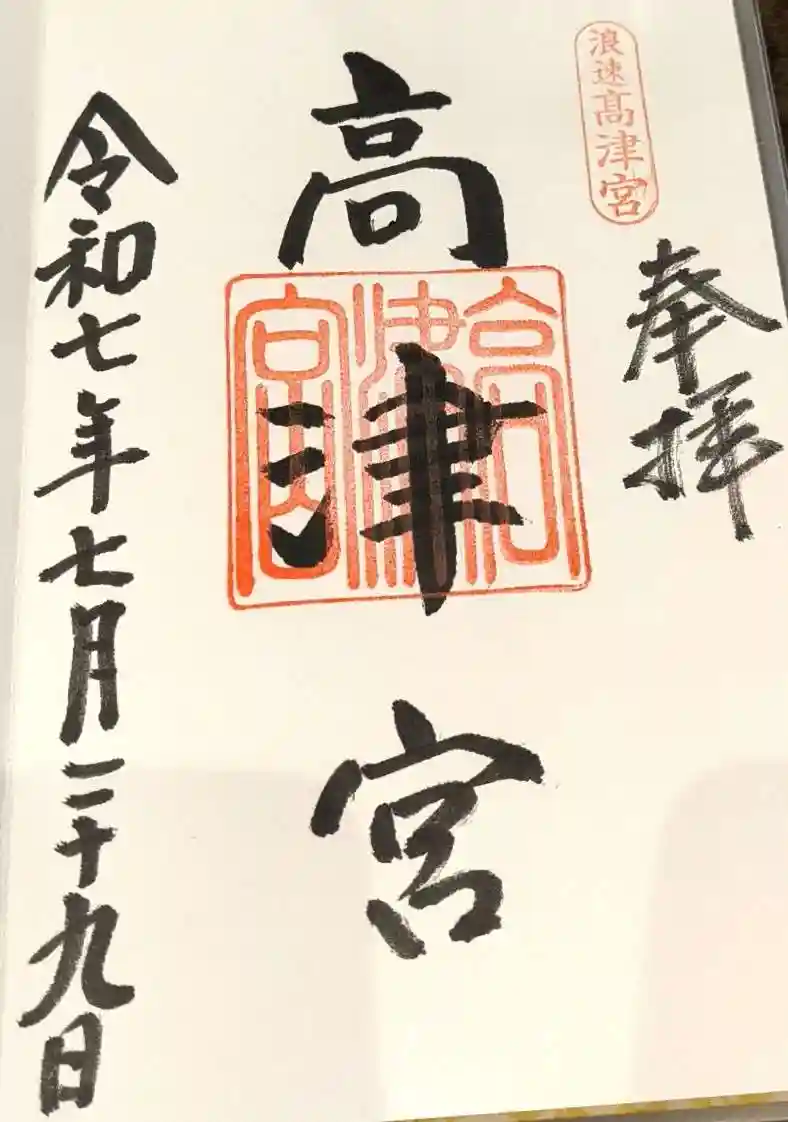 浪速髙津宮
奉拝
高津宮
高津宮
令和七年七月二十九日